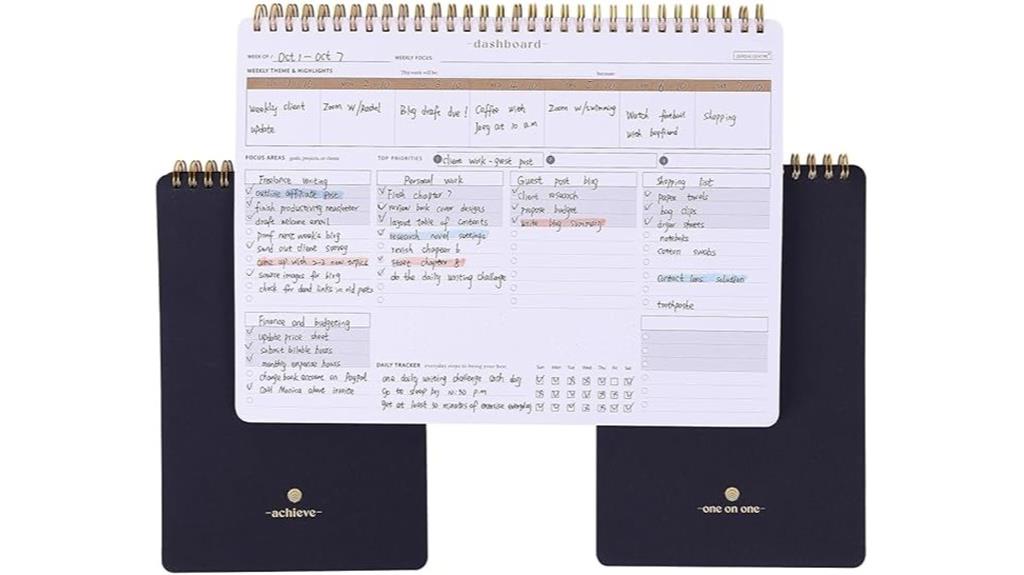 -dashboard-
WEEK OF / Oct 1 - Oct 7 WEEKLY FOCUS:
WEEKLY THEME & HIGHLIGHTS This week will be: because:
Weekly client update
Zoom w/
Blog draft due!
Coffee with at 10 a.m
Zoom w/swimming
Watch football with boyfriend
Shopping
FOCUS AREAS goals, projects, or clients
TOP PRIORITIES 1 client work - guest post 2 3
Freelance writing
outline affiliate post
finish productivity newsletter
draft welcome email
proof next week's blog
send out client survey
come up with 2-3 new topics
source images for blog
check for dead links in old posts
Personal work
Finish chapter 7
review book cover designs
layout table of contents
research novel settings
revish chapter 6
start chapter 8
do the daily writing challenge
Guest post blog
client research
propose budget
write blog summary
Shopping list
paper towels
bag clips
dryer sheets
notebooks
cotton swabs
contact lens solution
toothpaste
Finance and budgeting
update price sheet
submit billable hours
monthly expense hours
change bank account on Paypal
Call Monica about invoice
DAILY TRACKER everyday steps to being your best. Sun Mon Tue Wed Thu Fri Sat
one daily writing challenge each day
Go to sleep by 10:30 p.m
get at least 30 minutes of exercise everyday
-achieve-
-one on one-